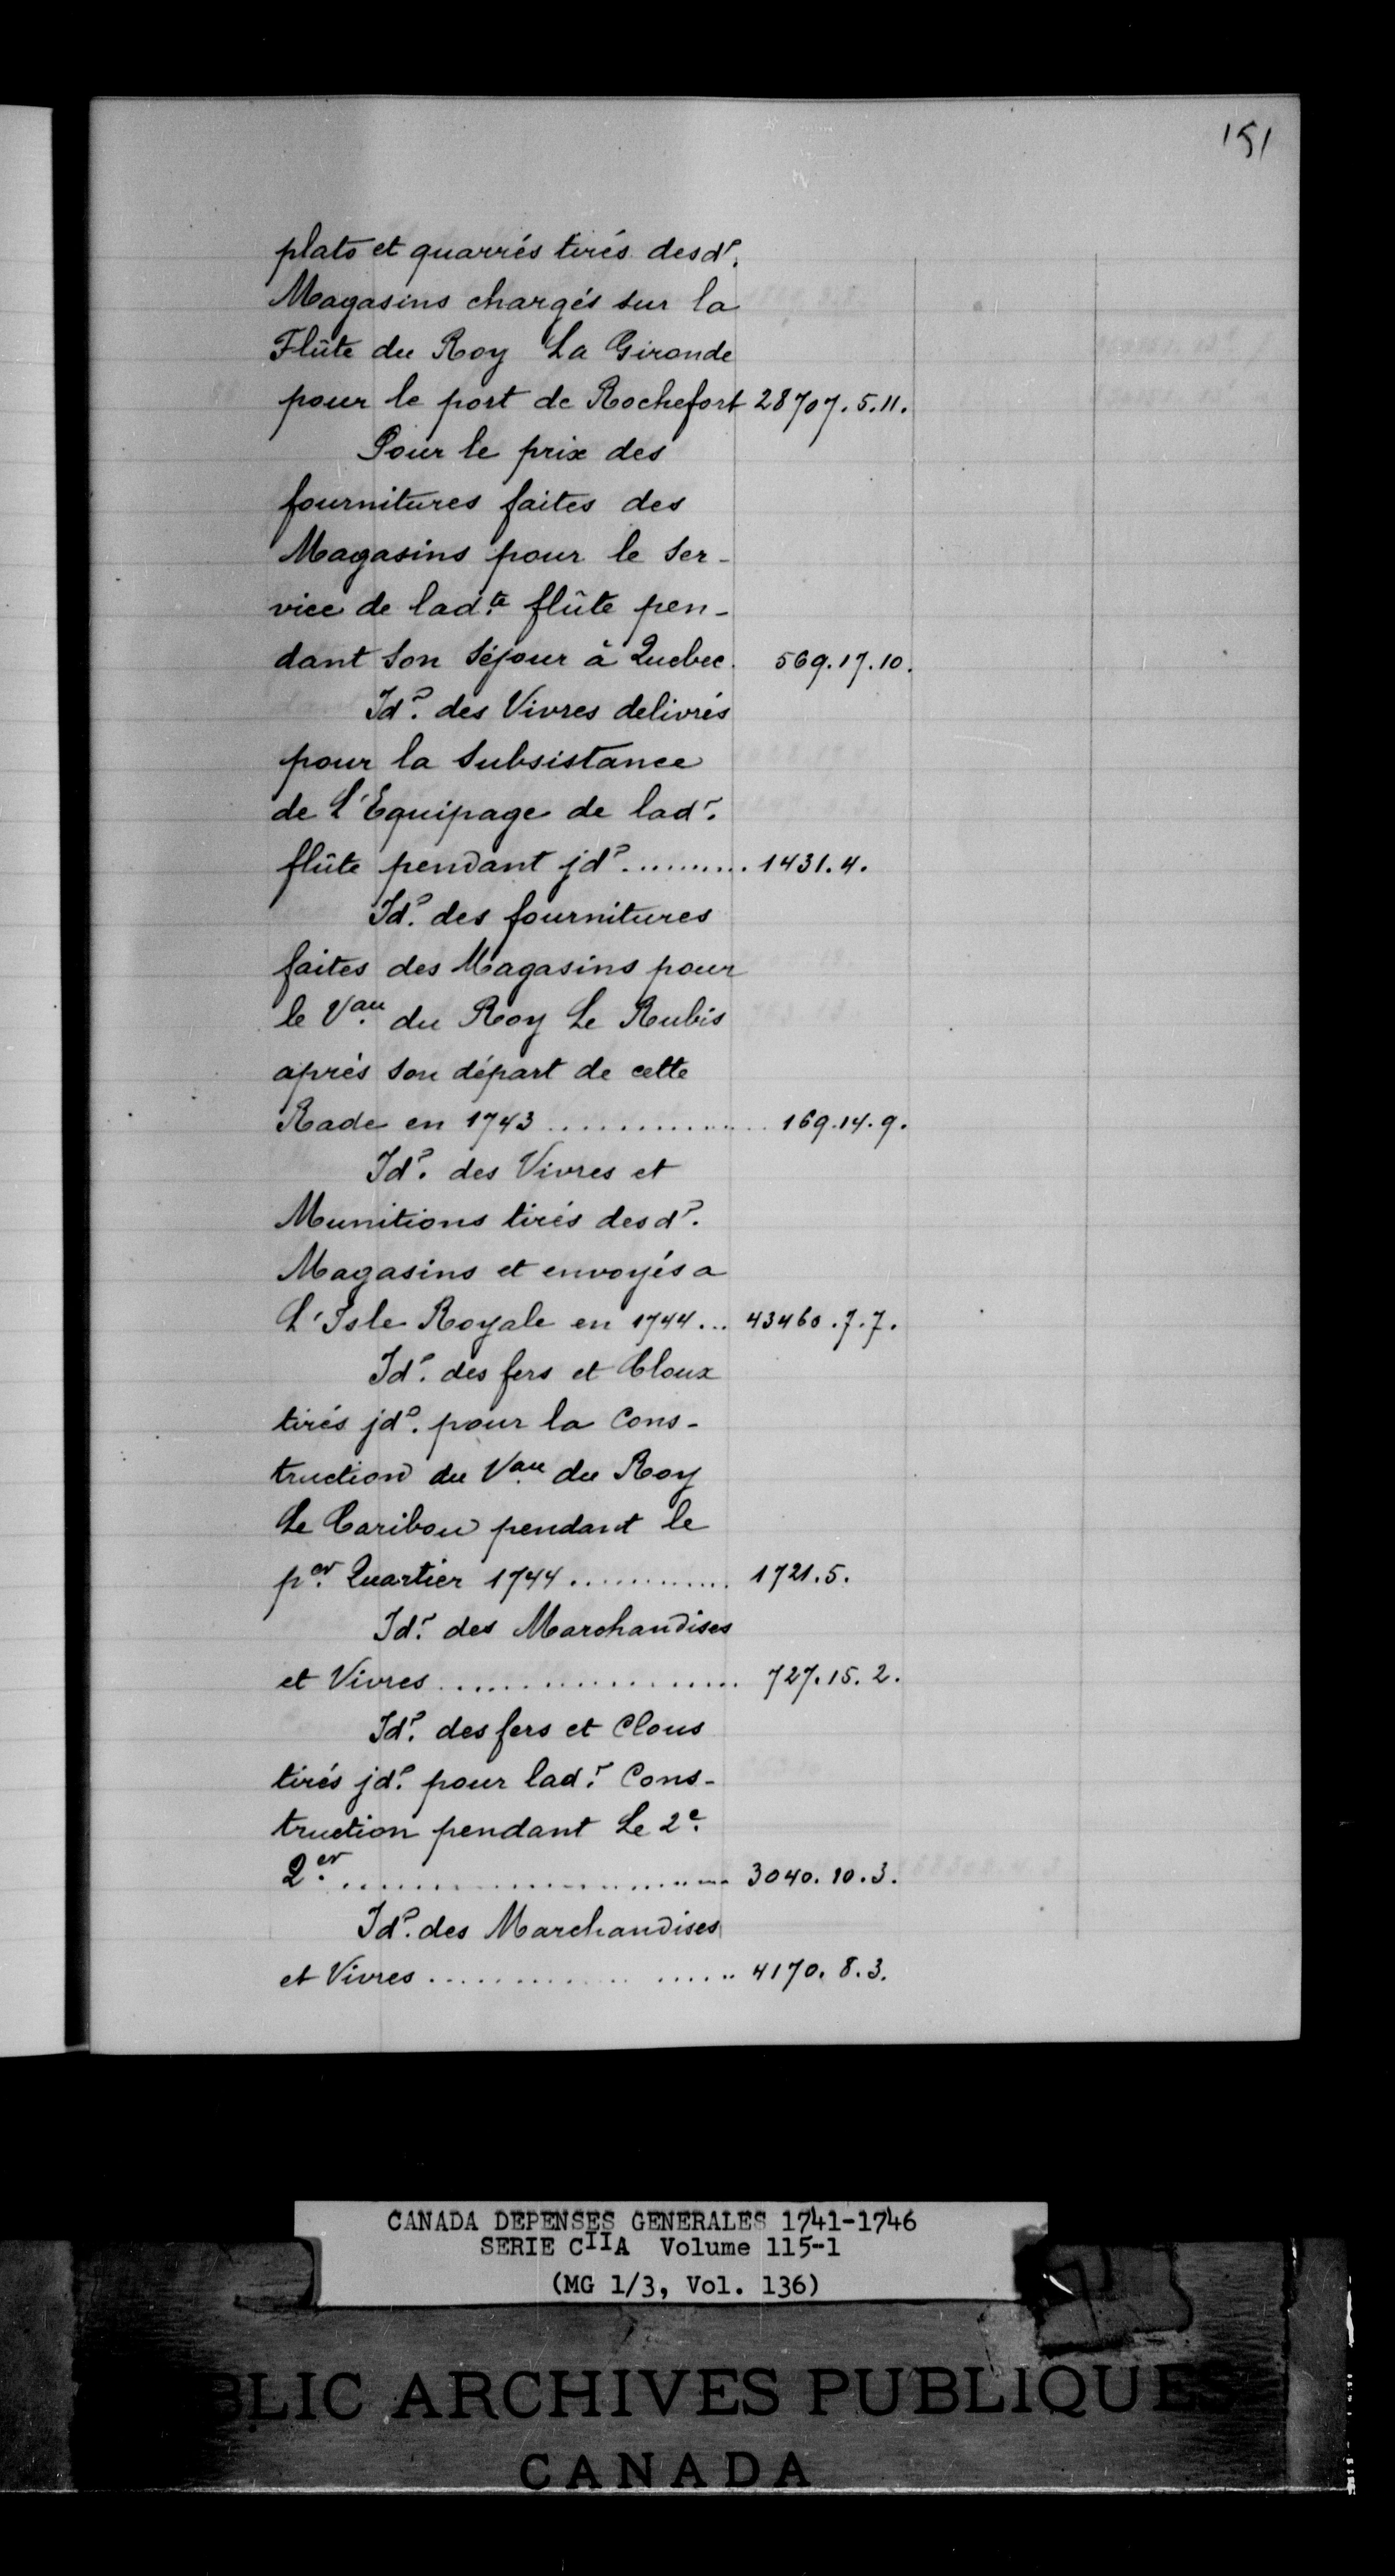 151
plats et quarrés tirés desd.
Magasins chargés sur la
Flûte du Roy La Gironde
pour le port de Rochefort 28707. 5. 11.
Pour le prix des
fournitures faites des
Magasins pour le Ser-
vice de lad.te flûte pen-
dant Son Séjour à Quebec. 569. 17. 10.
Id.° des Vivres delivrés
pour la Subsistance
de L'Equipage de lad.
flûte pendant jd.° .......... 1431. 4.
Id.° des fournitures
faites des Magasins pour
le V.au du Roy Le Rubis
aprés Son départ de cette
Rade en 1743 ............... 169. 14. 9.
Id.° des Vivres et
Munitions tirés desd.
Magasins et envoyés a
L'Isle Royale en 1744 ... 43460. 7. 7.
Id.° des fers et Cloux
tirés jd.° pour la Cons-
truction du V.au du Roy
Le Caribou pendant le
p.er Quartier 1744 ............ 1721. 5.
Id.° des Marchandises
et Vivres .................... 727. 15. 2.
Id.° des fers et Clous
tirés jd.° pour lad. Cons-
truction pendant Le 2.e
2.er ......................... 3040. 10. 3.
Id.° des Marchandises
et Vivres .................... 4170. 8. 3.
CANADA DEPENSES GENERALES 1741-1746
SERIE CIIA Volume 115-1
(MG 1/3, Vol. 136)
BLIC ARCHIVES PUBLIQUES
CANADA